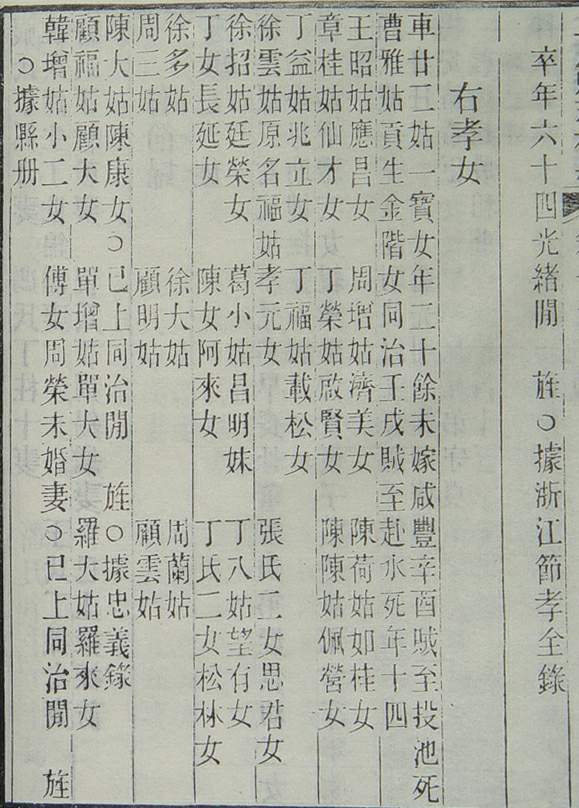 卒年六十四光緒閒 旌○據浙江節孝全錄
右孝女
車廿三姑一寶女年二十餘未嫁咸豐辛酉賊至投池死
曹雅姑貢生金階女同治壬戌賊至赴水死年十四
王昭姑應昌女 周增姑濟美女 陳荷姑如桂女
章桂姑仙才女 丁榮姑啟賢女 陳陳姑佩營女
丁益姑兆立女 丁福姑載松女
徐雲姑原名福姑孝元女 張氏二女思君女
徐招姑廷榮女 葛小姑昌明妹 丁八姑望有女
丁女長延女 陳女阿來女 丁氏二女松林女
徐多姑 徐大姑 周蘭姑
周三姑 顧明姑 顧雲姑
陳大姑陳康女○已上同治閒 旌○據忠義錄
顧福姑顧大女 單增姑單大女 羅大姑羅來女
韓增姑小二女 傅女周榮未婚妻○已上同治閒 旌
○據縣册